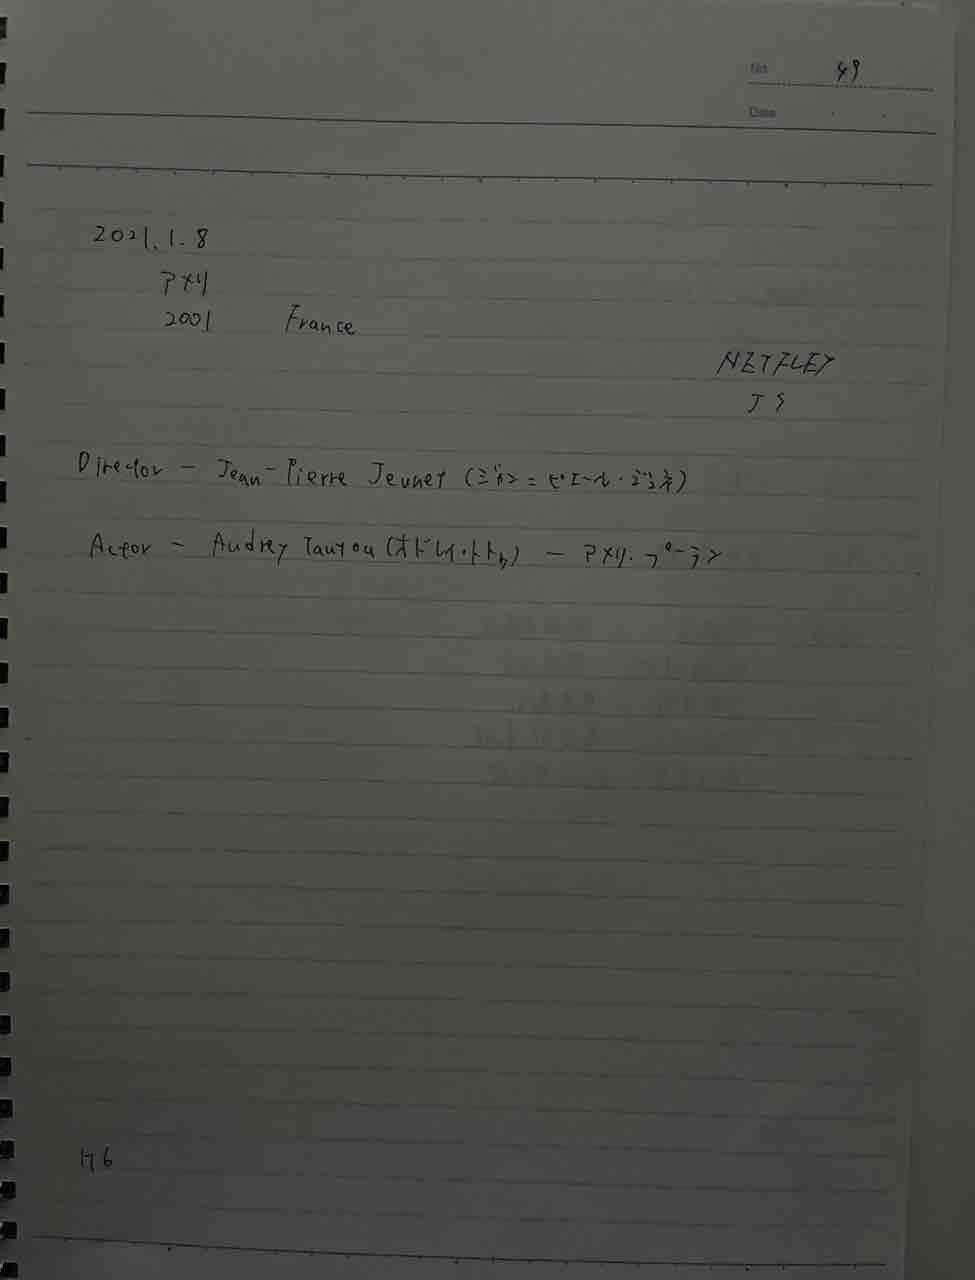 No. 49
Date
2021.1.8
アメリ
2001 France
NETFLEX
J S
Director - Jean-Pierre Jeunet (ジャン=ピエール・ジュネ)
Actor - Audrey Tautou (オドレイ・トトゥ) - アメリ・プーラン